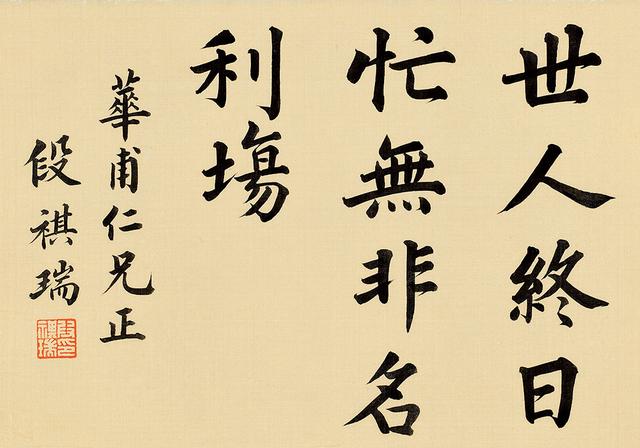 世人終日
忙無非名
利場
華甫仁兄正
段祺瑞